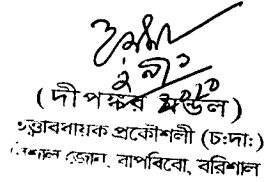 (দীপঙ্কর মন্ডল)
তত্ত্বাবধায়ক প্রকৌশলী (চ:দা:)
বরিশাল জোন, বাপবিবো, বরিশাল